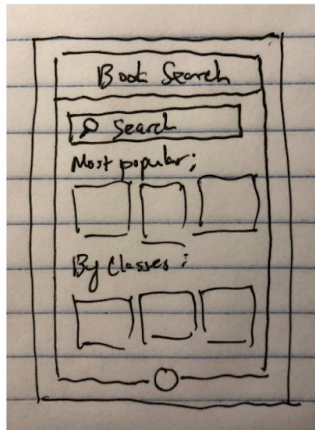 Book Search
Search
Most popular:
By Classes: